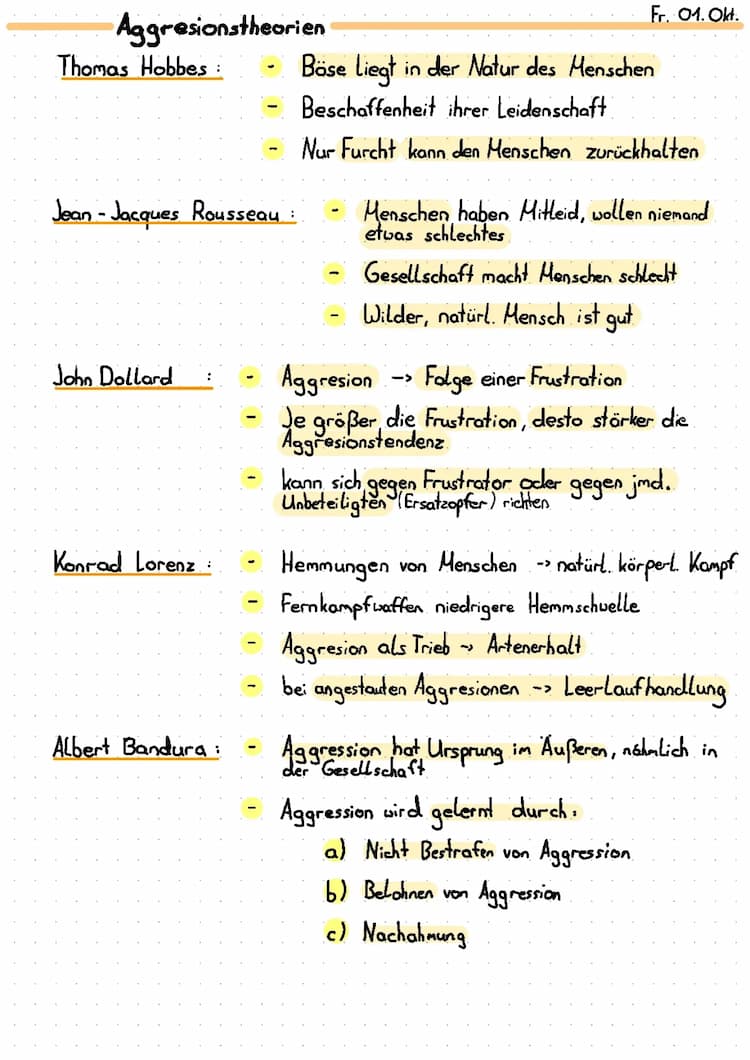 Fr. 01. Okt.
Aggresionstheorien
Thomas Hobbes : - Böse liegt in der Natur des Menschen
- Beschaffenheit ihrer Leidenschaft
- Nur Furcht kann den Menschen zurückhalten
Jean-Jacques Rousseau : - Menschen haben Mitleid, wollen niemand
etwas schlechtes
- Gesellschaft macht Menschen schlecht
- Wilder, natürl. Mensch ist gut
John Dollard : - Aggresion -> Folge einer Frustration
- Je größer die Frustration, desto stärker die
Aggresionstendenz
- kann sich gegen Frustrator oder gegen jmd.
Unbeteiligten (Ersatzopfer) richten
Konrad Lorenz : - Hemmungen von Menschen -> natürl. körperl. Kampf
- Fernkampfwaffen niedrigere Hemmschwelle
- Aggresion als Trieb ~> Artenerhalt
- bei angestauten Aggresionen -> Leerlaufhandlung
Albert Bandura : - Aggression hat Ursprung im Äußeren, nähmlich in
der Gesellschaft
- Aggression wird gelernt durch:
a) Nicht Bestrafen von Aggression
b) Belohnen von Aggression
c) Nachahmung